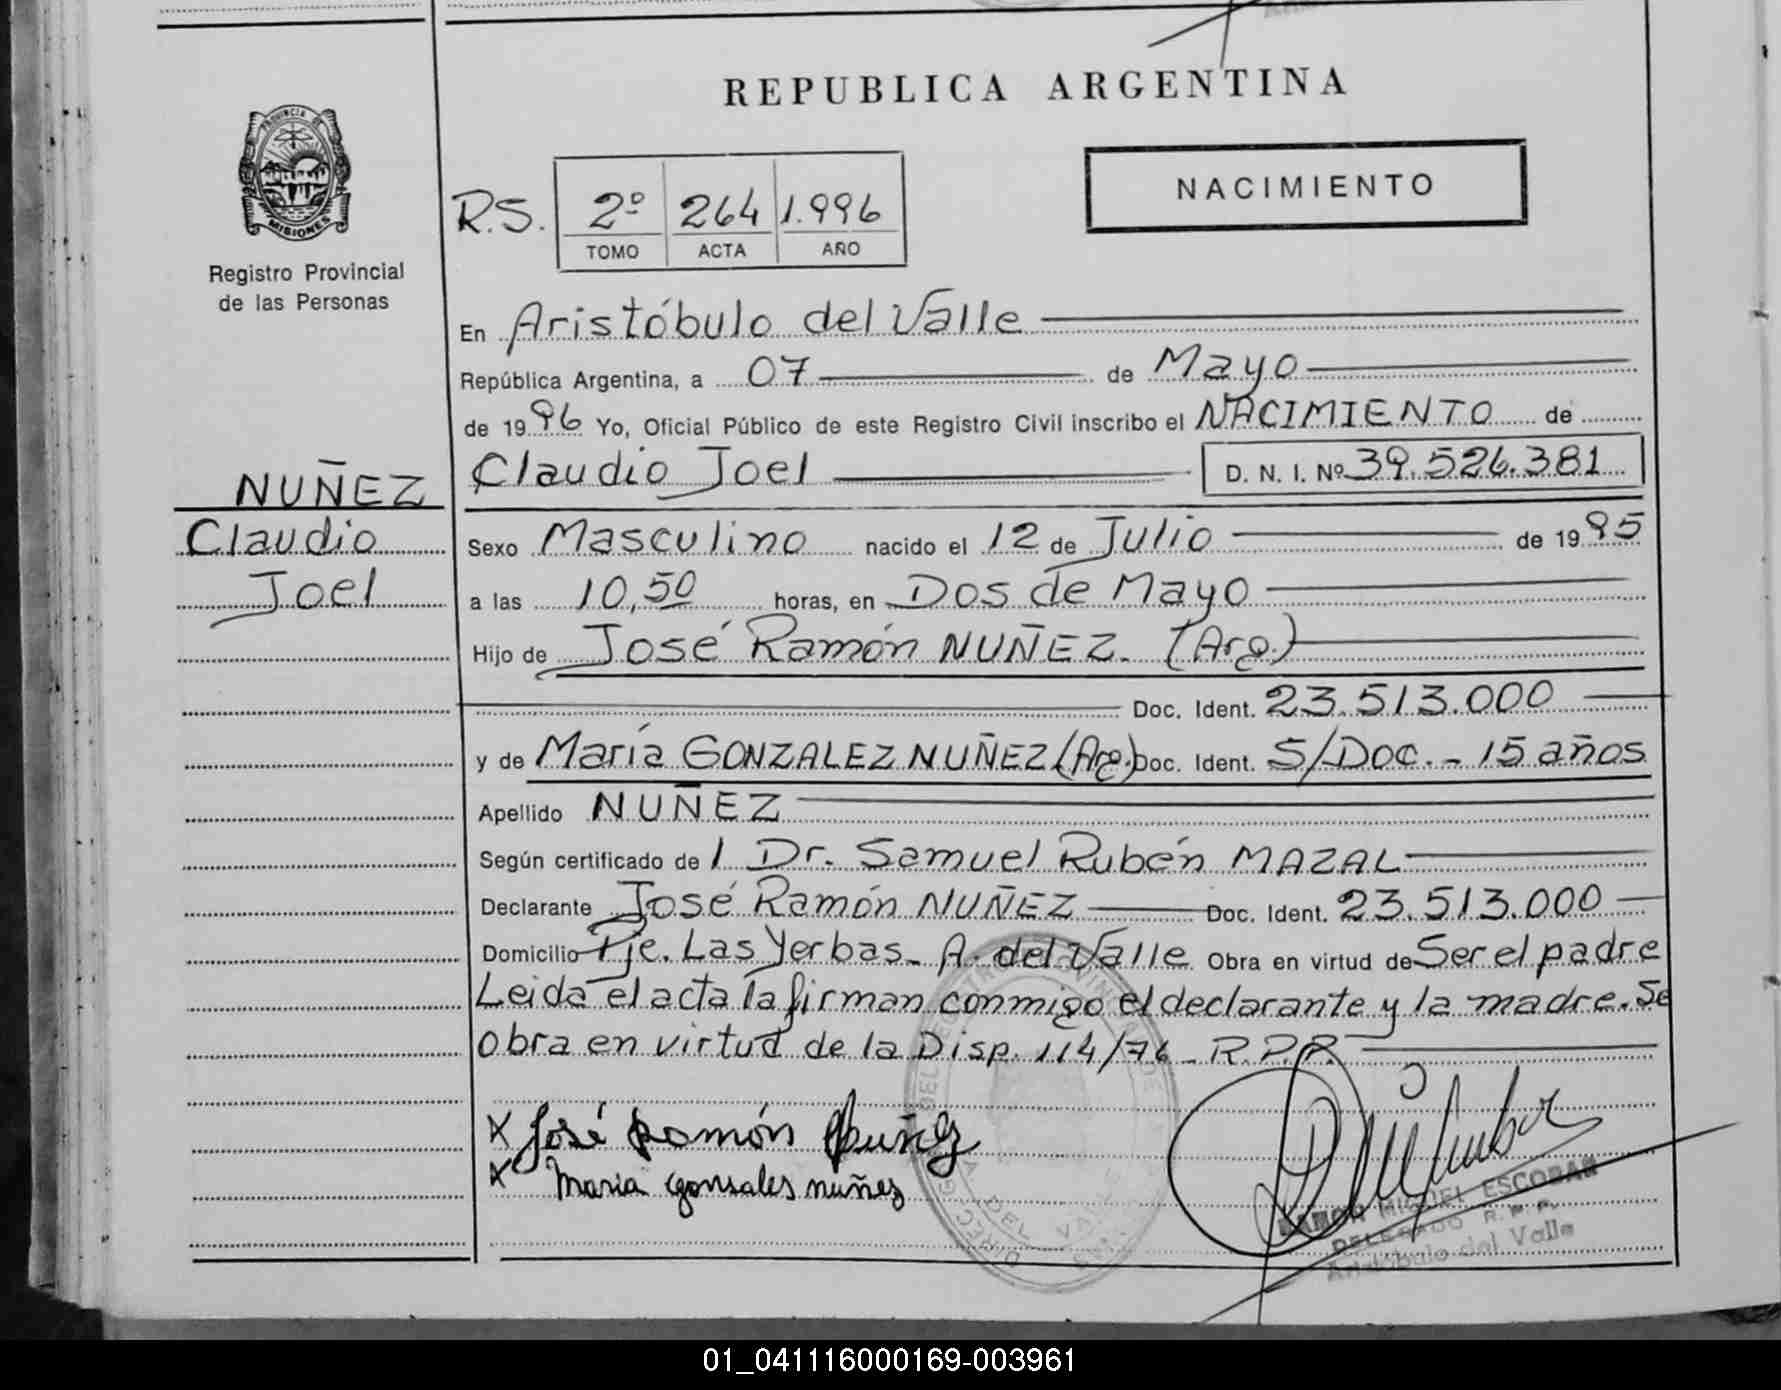 REPUBLICA ARGENTINA
PROVINCIA DE
MISIONES
Registro Provincial
de las Personas
NACIMIENTO
R.S. 2º 264 1.996
TOMO ACTA AÑO
En Aristóbulo del Valle
República Argentina, a 07 de Mayo
de 1996 Yo, Oficial Público de este Registro Civil inscribo el NACIMIENTO de
NUÑEZ
Claudio
Joel
Claudio Joel D. N. I. Nº 39.526.381
Sexo Masculino nacido el 12 de Julio de 1995
a las 10,50 horas, en Dos de Mayo
Hijo de José Ramón NUÑEZ. (Arg.)
Doc. Ident. 23.513.000
y de María GONZALEZ NUÑEZ (Arg.) Doc. Ident. S/Doc. - 15 años
Apellido NUÑEZ
Según certificado de l Dr. Samuel Rubén MAZAL
Declarante José Ramón NUÑEZ Doc. Ident. 23.513.000
Domicilio Pje. Las Yerbas - A. del Valle Obra en virtud de Ser el padre
Leida el acta la firman conmigo el declarante y la madre. Se
obra en virtud de la Disp. 114/76 - R.P.P.
X José Ramón Nuñez
X Maria gonsales nuñez
RAMON MIGUEL ESCOBAR
DELEGADO R. P. P.
Aristóbulo del Valle
01_041116000169-003961